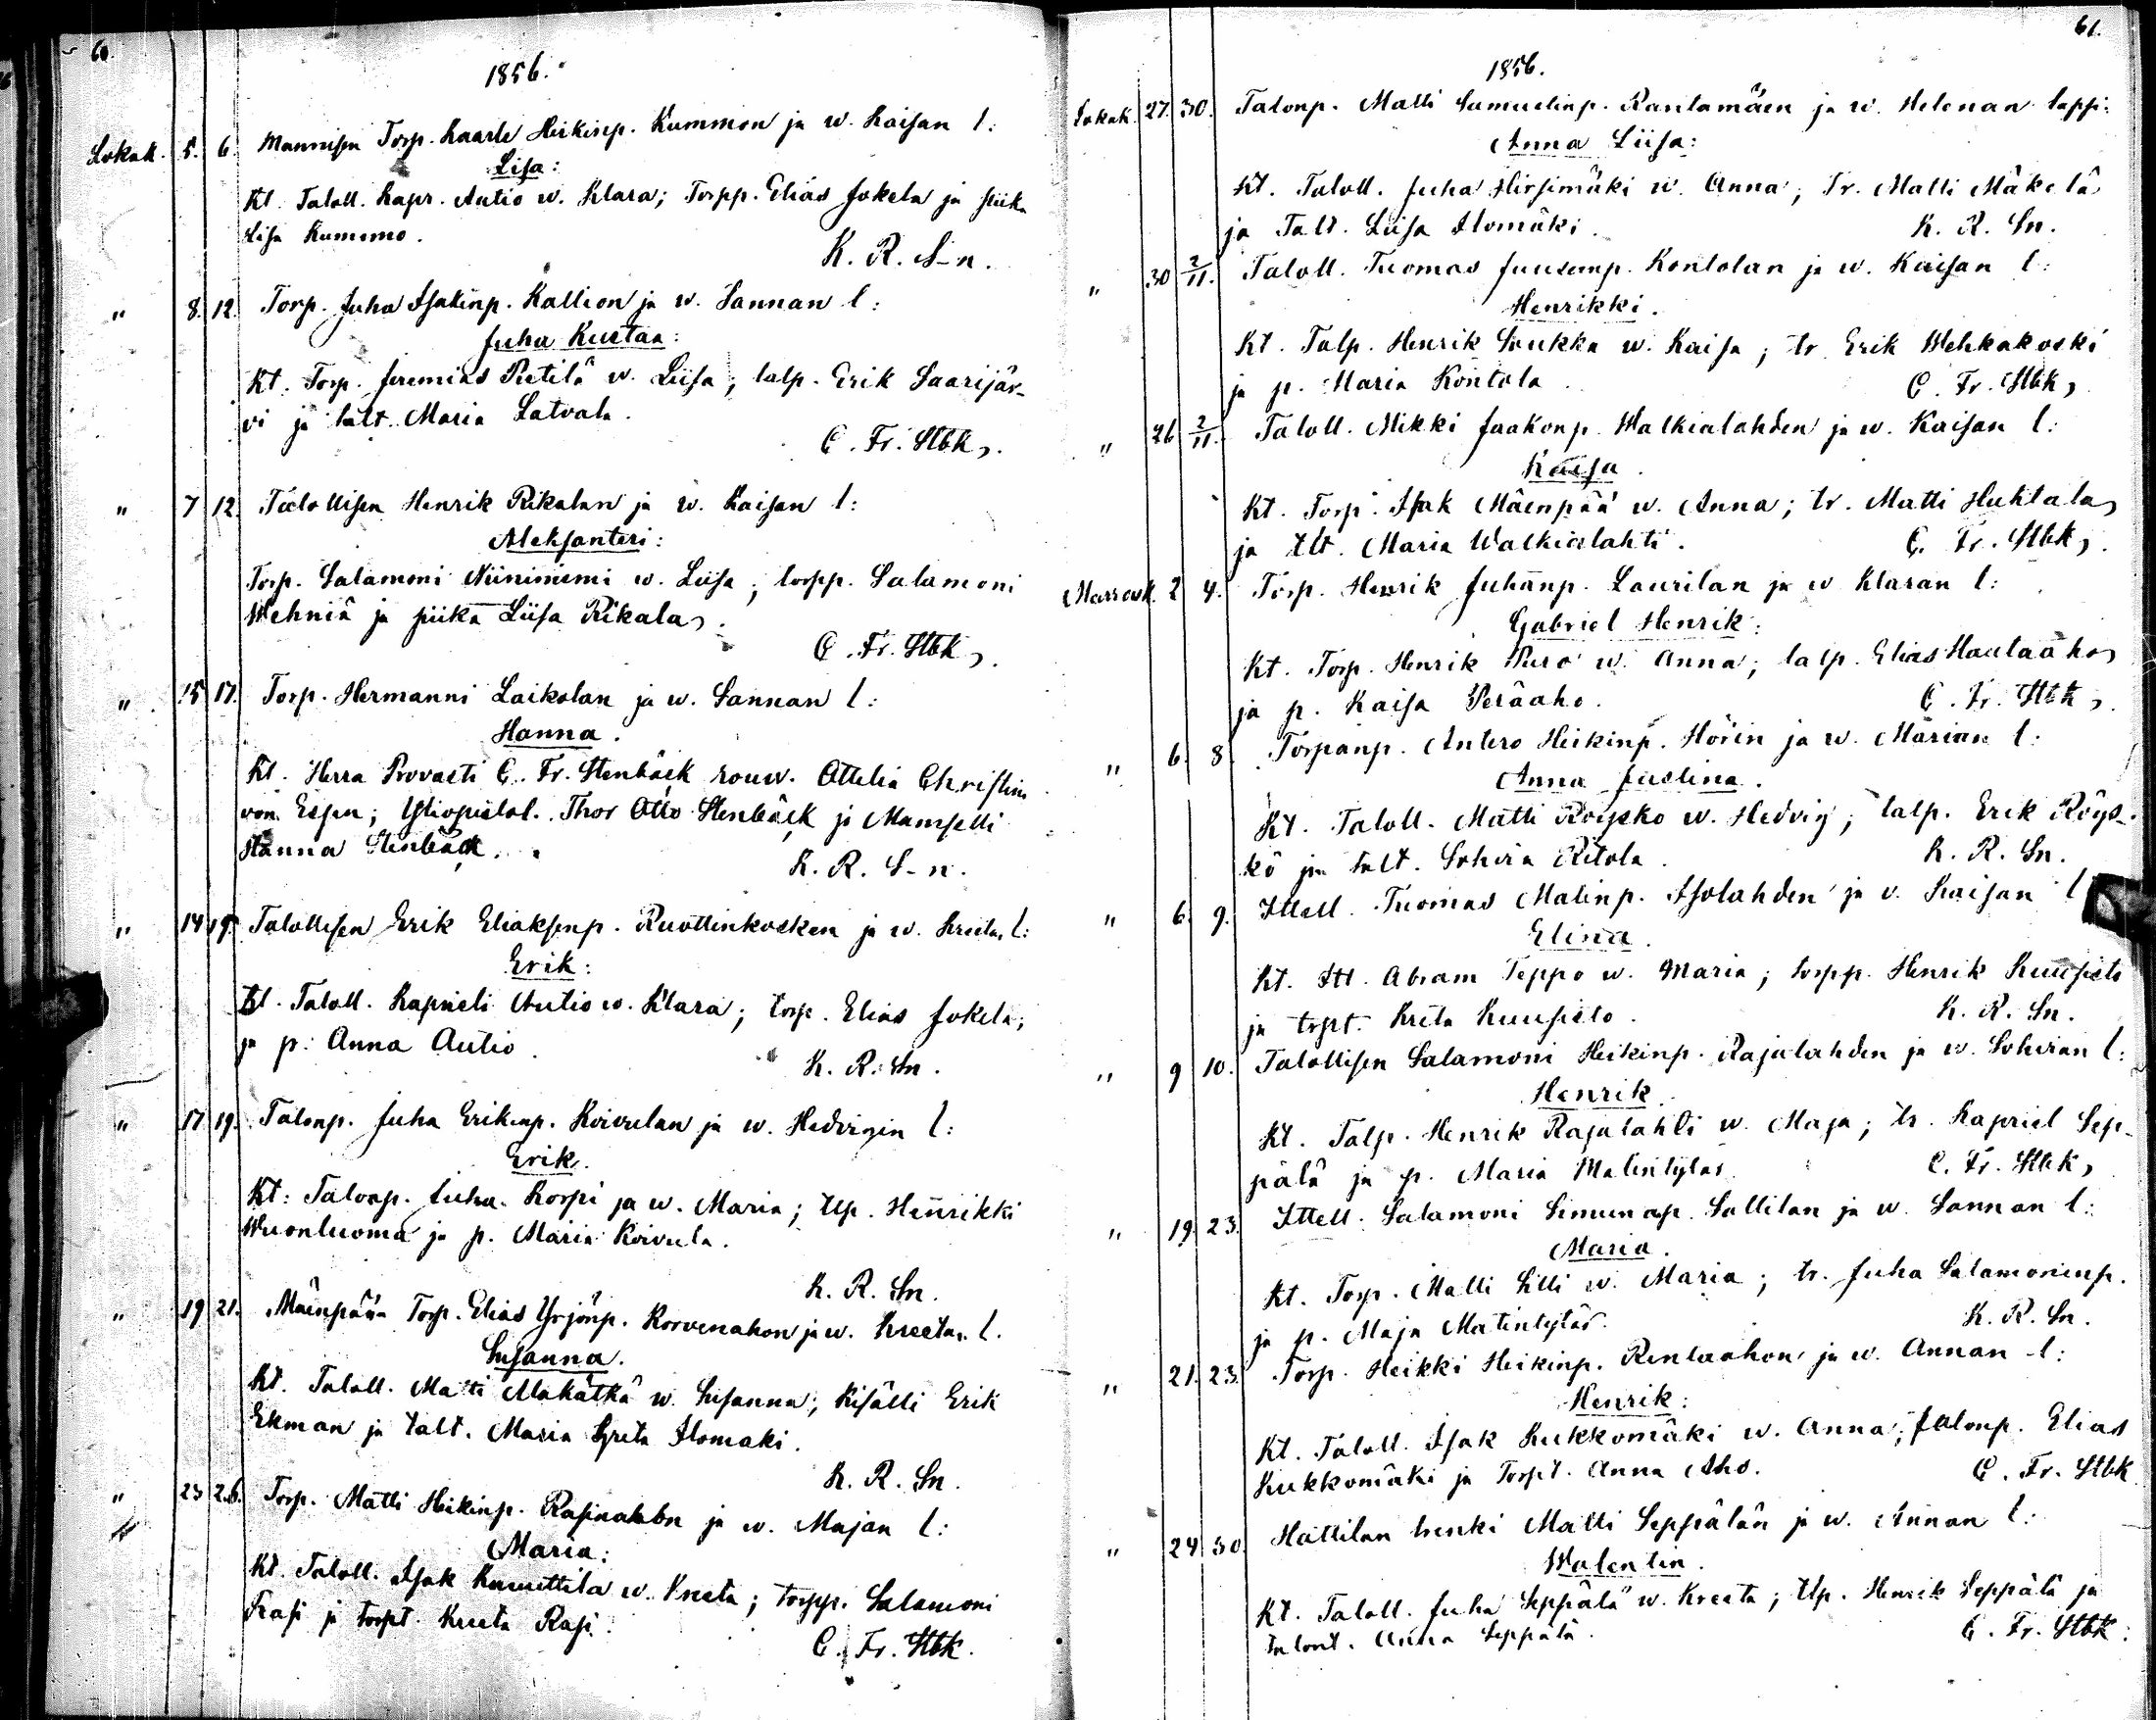 60.
1856.
Lokak. 5. 6. Mannisen Torp. Kaarle Heikinp. Kummon ja w. Kaisan l:
Lisa:
Kt. Taloll. Kapr. Autio w. Klara; Torpp. Elias Jokela ja piika
Lisa Kummo.
K. R. S-n.
" 8. 12. Torp. Juha Isakinp. Kallion ja w. Sannan l:
Juha Kustaa:
Kt. Torp. Jeremias Pietilä w. Liisa; talp. Erik Saarijär-
vi ja talt. Maria Latvala.
C. Fr. Stbk.
" 7 12. Talollisen Henrik Rikalan ja w. Kaisan l:
Aleksanteri:
Torp. Salamoni Niinimemi w. Liisa; torpp. Salamoni
Wehniä ja piika Liisa Rikala.
C. Fr. Stbk.
" 15 17. Torp. Hermanni Laikolan ja w. Sannan l:
Hanna.
Kt. Herra Provasti C. Fr. Stenbäck rouw. Ottelia Christina
von Essen; Yliopistol. Thor Otto Stenbäck ja Mamselli
Hanna Stenbäck.
K. R. S-n.
" 14 19. Talollisen Erik Eliaksenp. Ruottinkosken ja w. Kreetan l:
Erik:
Kt. Taloll. Kaprieli Autio w. Klara; torp. Elias Jokela;
ja p. Anna Autio.
K. R. Sn.
" 17 19. Talonp. Juha Erikinp. Koivulan ja w. Hedvigin l:
Erik.
Kt: Talonp. Juha Korpi ja w. Maria; tlp. Henrikki
Wuonluoma ja p. Maria Koivula.
K. R. Sn.
" 19 21. Mäenpään Torp. Elias Yrjönp. Korvenahon ja w. Kreetan l.
Susanna.
Kt. Taloll. Matti Makätkä w. Susanna; Kisälli Erik
Ekman ja talt. Maria Greta Ilomaki.
K. R. Sn.
" 23 26. Torp. Matti Heikinp. ja w. Majan l:
Maria:
Kt. Taloll. Isak Knuuttila w. Kreeta; torpp. Salamoni
Rasi ja torpt. Kreeta Rasi.
C. Fr. Stbk.
61.
1856.
Lokak. 27. 30. Talonp. Matti Samuelinp. Rantamäen ja w. Helenan lapsi:
Anna Liisa:
Kt. Taloll. Juha Hirsimäki w. Anna; Tr. Matti Mäkelä
ja Talt. Liisa Ilomäki.
K. R. Sn.
" 30 2/11. Taloll. Tuomas Juusenp. Kontolan ja w. Kaisan l:
Henrikki.
Kt. Talp. Henrik Soukka w. Kaisa; tr. Erik Wehkakoski
ja p. Maria Kontola.
C. Fr. Stbk.
" 26 2/11. Taloll. Mikki Jaakonp. Walkialahden ja w. Kaisan l:
Kaisa.
Kt. Torp. Isak Mäenpää w. Anna; tr. Matti Huhtala
ja tlt. Maria Walkialahti.
C. Fr. Stbk.
Marrask. 2 4. Torp. Henrik Juhanp. Laurilan ja w Klaran l:
Gabriel Henrik:
Kt. Torp. Henrik Puro w. Anna; talp. Elias Hautaaho
ja p. Kaisa Peräaho.
C. Fr. Stbk.
" 6. 8. Torpanp. Antero Heikinp. Hörin ja w. Marian l:
Anna Justina.
Kt. Taloll. Matti Röysko w. Hedvig; talp. Erik Röys-
kö ja talt. Sohvia Ritola.
K. R. Sn.
" 6. 9. Ittell. Tuomas Matinp. Isolahden ja v. Kaisan l
Elina.
Kt. Itt. Abram Teppo w. Maria; torpp. Henrik Kuusisto
ja trpt. Kreta Kuusisto.
K. R. Sn.
" 9 10. Talollisen Salamoni Heikinp. Rajalahden ja w. Sohvian l:
Henrik.
Kt. Talp. Henrik Rajalahti w. Maja; tr. Kapriel Sep-
pälä ja p. Maria Matintytär.
C. Fr. Stbk.
" 19. 23. Ittell. Salamoni Simunap. Sallilan ja w. Sannan l:
Maria.
Kt. Torp. Matti Lilli w. Maria; tr. Juha Salamoninp.
ja p. Maja Matintytär.
K. R. Sn.
" 21. 23. Torp. Heikki Heikinp. Rentaahon ja w. Annan l:
Henrik:
Kt. Taloll. Isak Kukkomäki w. Anna; Talonp. Elias
Kukkomäki ja Torpt. Anna Aho.
C. Fr. Stbk
" 24 30. Hattilan henki Matti Seppälän ja w. Annan l:
Walentin.
Kt. Taloll. Juha Seppälä w. Kreeta; tlp. Henrik Seppälä ja
talont. Anna Seppälä.
C. Fr. Stbk.